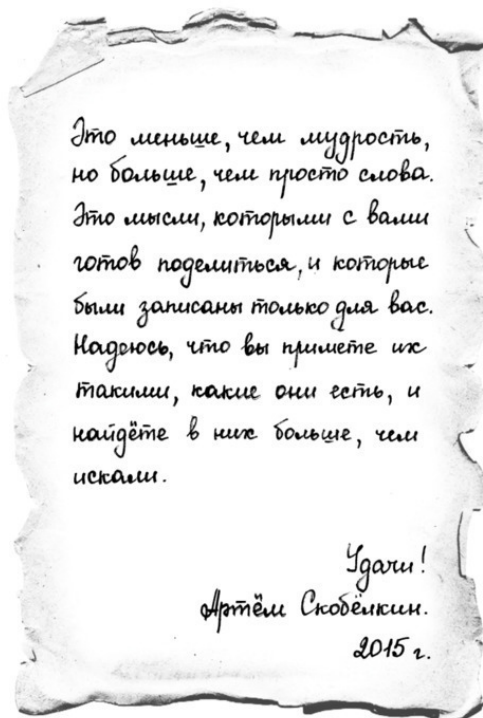 Это меньше, чем мудрость,
но больше, чем просто слова.
Это мысли, которыми с вами
готов поделиться, и которые
были записаны только для вас.
Надеюсь, что вы примете их
такими, какие они есть, и
найдёте в них больше, чем
искали.
Удачи!
Артём Скобёлкин.
2015 г.